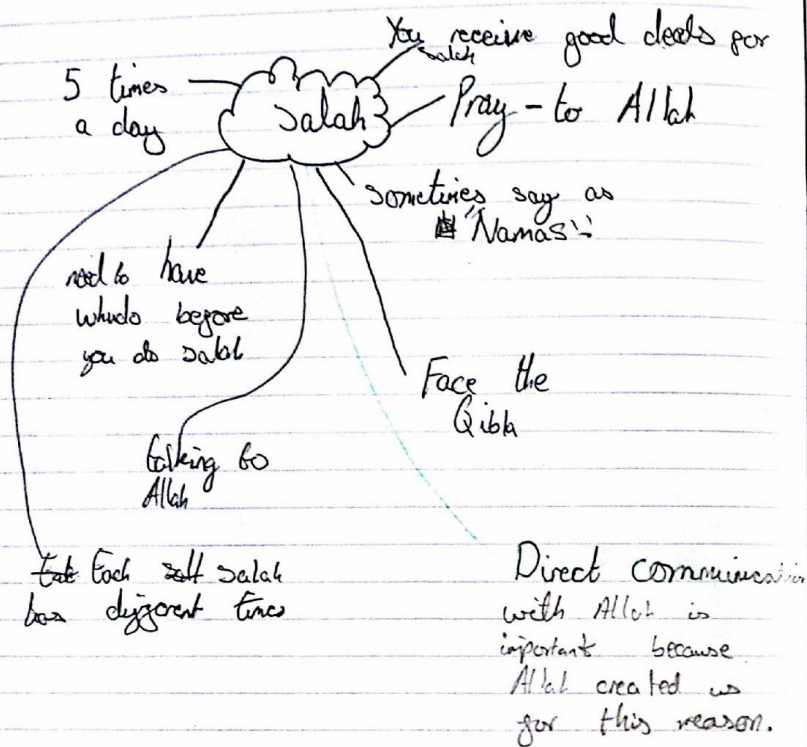 You receive good deeds for
salah
5 times
a day
Salah
Pray - to Allah
sometimes say as
"Namas"
need to have
whudo before
you do salah
Face the
Qibla
talking to
Allah
Each salah
has different times
Direct communication
with Allah is
important because
Allah created us
for this reason.